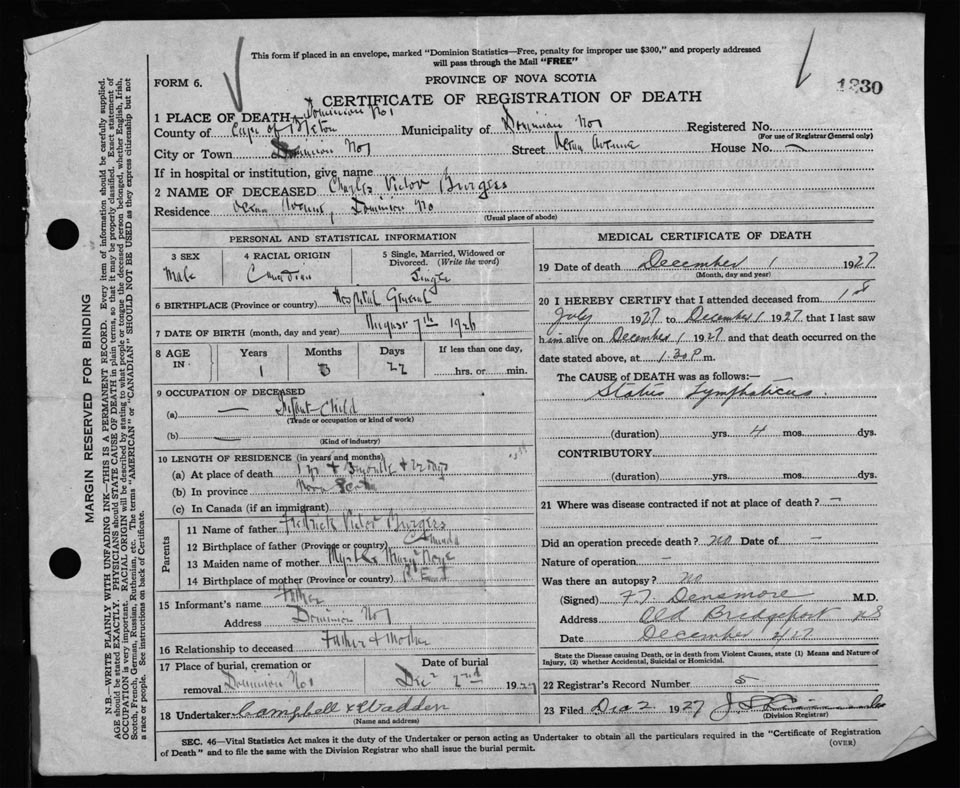 This form if placed in an envelope, marked "Dominion Statistics—Free, penalty for improper use $300," and properly addressed
will pass through the Mail "FREE"
FORM 6.
PROVINCE OF NOVA SCOTIA
1330
CERTIFICATE OF REGISTRATION OF DEATH
1 PLACE OF DEATH Dominion No 1
County of Cape of Breton Municipality of Dominion No 1 Registered No.
(For use of Registrar General only)
City or Town Dominion No 1 Street Ocean Avenue House No. —
If in hospital or institution, give name
2 NAME OF DECEASED Charles Victor Burgess
Residence Ocean Avenue, Dominion No
(Usual place of abode)
PERSONAL AND STATISTICAL INFORMATION
3 SEX 4 RACIAL ORIGIN 5 Single, Married, Widowed or
Divorced. (Write the word)
Male Canadian Single
6 BIRTHPLACE (Province or country) Hospital General
7 DATE OF BIRTH (month, day and year) August 7th 1926
8 AGE IN Years Months Days If less than one day,
1 3 22 hrs. or min.
9 OCCUPATION OF DECEASED
(a) — Infant Child
(Trade or occupation or kind of work)
(b) —
(Kind of industry)
10 LENGTH OF RESIDENCE (in years and months)
(a) At place of death 1 yr + 3 month + 22 days
(b) In province Nova Scotia
(c) In Canada (if an immigrant)
Parents
11 Name of father Fredrick Victor Burgess
12 Birthplace of father (Province or country) Canada
13 Maiden name of mother Myrtle
14 Birthplace of mother (Province or country)
15 Informant's name Father
Address Dominion No 1
16 Relationship to deceased Father + Mother
17 Place of burial, cremation or Date of burial
removal Dominion No 1 Dec 2nd 1927
18 Undertaker Campbell & Wadden
(Name and address)
MEDICAL CERTIFICATE OF DEATH
19 Date of death December 1 1927
(Month, day and year)
20 I HEREBY CERTIFY that I attended deceased from 1st
July 1927 to December 1 1927 that I last saw
him alive on December 1 1927 and that death occurred on the
date stated above, at 1.30 P m.
The CAUSE of DEATH was as follows:—
Status Lymphaticus.
(duration) yrs. 4 mos. dys.
CONTRIBUTORY
(duration) yrs. mos. dys.
21 Where was disease contracted if not at place of death? —
Did an operation precede death? no Date of —
Nature of operation —
Was there an autopsy? no
(Signed) F J Densmore M.D.
Address Old Bridgeport N S
Date December 2/27
State the Disease causing Death, or in death from Violent Causes, state (1) Means and Nature of
Injury, (2) whether Accidental, Suicidal or Homicidal.
22 Registrar's Record Number 5
23 Filed Dec 2 1927
(Division Registrar)
SEC. 46—Vital Statistics Act makes it the duty of the Undertaker or person acting as Undertaker to obtain all the particulars required in the "Certificate of Registration
of Death" and to file the same with the Division Registrar who shall issue the burial permit.
(OVER)
MARGIN RESERVED FOR BINDING
N.B.—WRITE PLAINLY WITH UNFADING INK—THIS IS A PERMANENT RECORD. Every item of information should be carefully supplied.
AGE should be stated EXACTLY. PHYSICIANS should STATE CAUSE OF DEATH in plain terms, so that it may be properly classified. Exact statement of
OCCUPATION is very important. RACIAL ORIGIN will be described by stating to what people or tongue the deceased person belonged, whether English, Irish,
Scotch, French, German, Russian, Ruthenian, etc. The terms "AMERICAN" or "CANADIAN" SHOULD NOT BE USED as they express citizenship but not
a race or people. See instructions on back of Certificate.